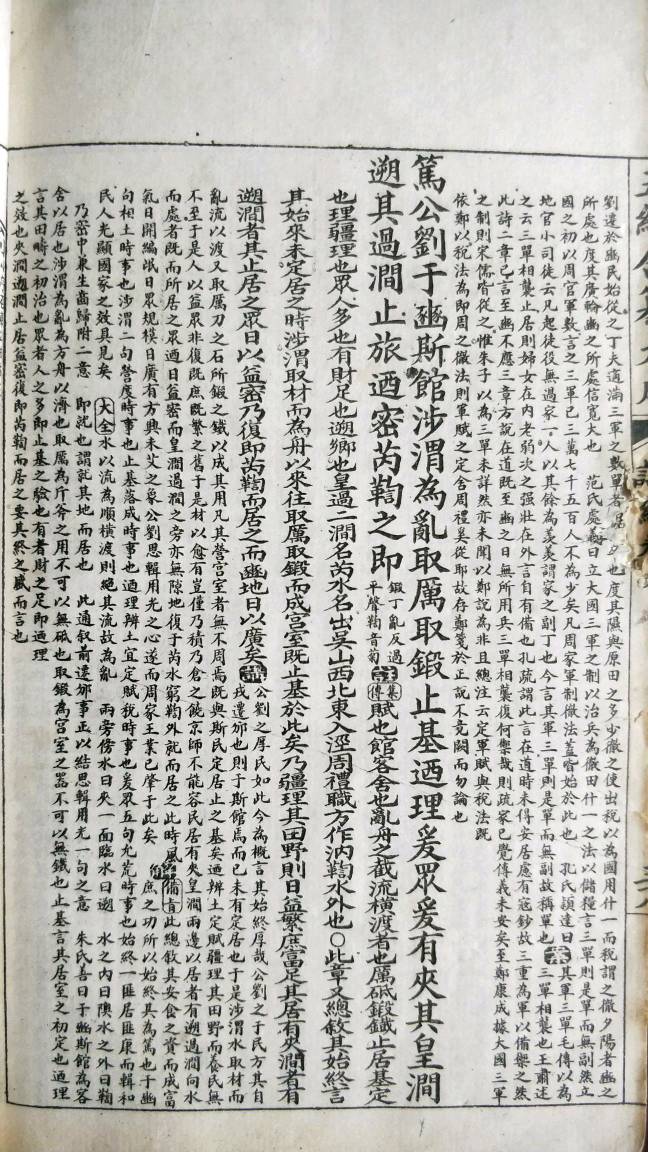 劉遷於豳民始從之丁夫適滿三軍之數單者
也度其隰與原田之多少徹之使出稅以為國用什一而稅謂之徹夕陽者豳之
所處也度其廣輪豳之所處信寬大也　范氏處義曰立大國三軍之制以治兵為徹田什一之法以儲糧言三單則是單而無副然立
國之初以周官軍數言之三軍已三萬七千五百人不為少矣凡周家軍制徹法蓋昉於此也　孔氏穎達曰其軍三單毛傳以為
地官小司徒云凡起徒役無過家一人以其餘為羨羨謂家之副丁也今言其軍三單則是單而無副故稱單也　三單相襲也王肅述
之云三單相襲止居則婦女在內老弱次之强壯在外言自有備也孔疏謂此言在道時未得安居慮有寇鈔故三重為軍以備禦之然
此詩二章已言至豳不應三章方說在道既至豳之日無所用兵三單相襲復何禦哉則疏家已覺傳義未安矣至鄭康成據大國三軍
之制則宋儒皆從之惟朱子以為三單未詳然亦未聞以鄭說為非且總注云定軍賦與稅法既
依鄭以稅法為即周之徹法則軍賦之定舍周禮奚從耶故存鄭箋於正說不竟闕而勿論也
篤公劉于豳斯館涉渭為亂取厲取鍛止基迺理爰眾爰有夾其皇澗
遡其過澗止旅迺密芮鞫之即
鍛丁亂反過
平聲鞫音菊
集傳
賦也館客舍也亂舟之截流橫渡者也厲砥鍛鐵止居基定
也理疆理也眾人多也有財足也遡鄉也皇過二澗名芮水名出吳山西北東入涇周禮職方作汭鞫水外也〇此章又總敘其始終言
其始來未定居之時涉渭取材而為舟以來往取厲取鍛而成宮室既止基於此矣乃疆理其田野則日益繁庶富足其居有夾澗者有
遡澗者其止居之眾日以益密乃復即芮鞫而居之而豳地日以廣矣
公劉之厚民如此今為概言其始終厚哉公劉之于民方其自
戎遷邠也則于斯館焉而已未有定居也于是涉渭水取材而
亂流以渡又取厲刀之石所鍛之鐵以成其用凡其營宮室者無不周焉既與斯民定居止之基矣遒辨土定賦疆理其田野而養民無
不至于是人以益眾非復既庶既繁之舊于是材以愈有豈僅乃積乃倉之饒京師不能容民居有夾皇澗兩邊以居者有遡過澗向水
而處者既而所居之眾迺日益密而皇澗過澗之旁亦無隙地復于芮水窮鞫外就而居之此時風
氣日開編氓日眾規模日廣有方興未艾之象公劉思輯用光之心遂而周家王業已肇于此矣
備旨
此總敘其安食之資而成富
庶之功所以始終其為篤也于豳
句相土時事也涉渭二句營度時事也止基落成時事也迺理辨土宜定賦稅時事也爰眾五句允荒時事也始終一匪居匪康而輯和
民人光顯國家之效具見矣
大全
水以流為順橫渡則絕其流故為亂　兩旁傍水曰夾一面臨水曰遡　水之內曰隩水之外曰鞫
乃密中兼生齒歸附二意　即就也謂就其地而居也　此通敘前遷邠事正以結思輯用光一句之意　朱氏善曰于豳斯館為客
舍以居也涉渭為亂為方舟以濟也取厲為斤斧之用不可以無砥也取鍛為宮室之器不可以無鐵也止基言其居室之初定也迺理
言其田疇之初治也眾者人之多即止基之驗也有者財之足即迺理
之效也夾澗遡澗止居益密復即芮鞫而居之要其終之盛而言也